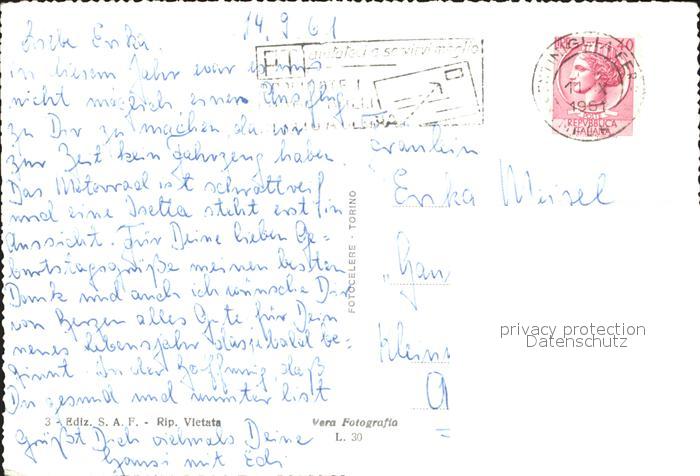 14.9.61
Liebe Erika.
in diesem Jahr war es uns
nicht möglich einen Ausflug
zu Dir zu machen, da wir
zur Zeit kein Fahrzeug haben.
Das Motorrad ist schrottreif
und eine Isetta steht erst in
Aussicht. Für Deine lieben Ge=
burtstagsgrüße meinen besten
Dank und auch ich wünsche Dir
von Herzen alles Gute für Dein
neues Lebensjahr das ja bald be=
ginnt. In der Hoffnung, daß
Du gesund und munter bist
grüßt Dich vielmals Deine
mit Edi.
3 - Ediz. S. A. F. - Rip. Vietata
Vera Fotografia
L. 30
FOTOCELERE - TORINO
1961
40
POSTE
REPVBBLICA
ITALIANA
Fräulein
Erika Meisel
"Gan
Klein
privacy protection
Datenschutz